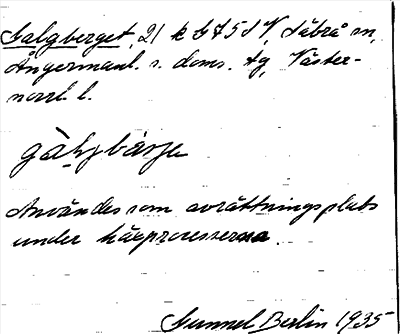 Galgberget, 21 k G 7 5 d V, Säbrå sn,
Ångermanl. s. doms. tg, Väster-
norrl. l.
gàl̥gbärje
Användes som avrättningsplats
under häxprocesserna.
Gunnel Berlin 1935